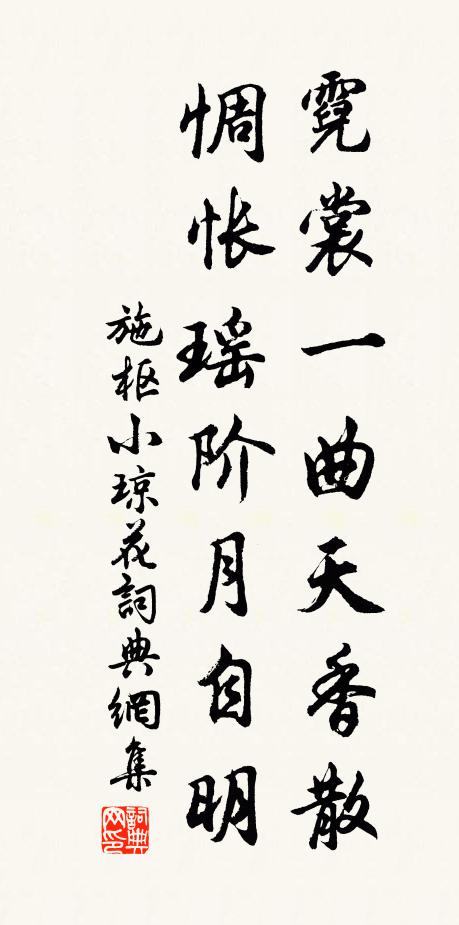 霓裳一曲天香散
惆怅瑶阶月自明
施枢小琼花詞典網集
詞典网印